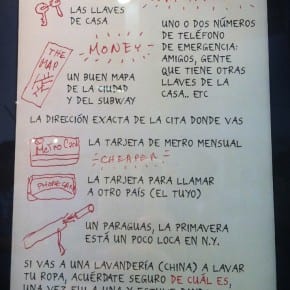 LAS LLAVES
DE CASA
UNO O DOS NÚMEROS
DE TELÉFONO
DE EMERGENCIA:
AMIGOS, GENTE
QUE TIENE OTRAS
LLAVES DE LA
CASA.. ETC
MONEY
THE MAP
UN BUEN MAPA
DE LA CIUDAD
Y DEL SUBWAY
LA DIRECCIÓN EXACTA DE LA CITA DONDE VAS
METRO CARD
LA TARJETA DE METRO MENSUAL
CHEAPER
PHONE CARD
LA TARJETA PARA LLAMAR
A OTRO PAÍS (EL TUYO)
UN PARAGUAS, LA PRIMAVERA
ESTÁ UN POCO LOCA EN N.Y.
SI VAS A UNA LAVANDERÍA (CHINA) A LAVAR
TU ROPA, ACUÉRDATE SEGURO DE CUÁL ES,
UNA VEZ FUI A UNA Y ESTUVE